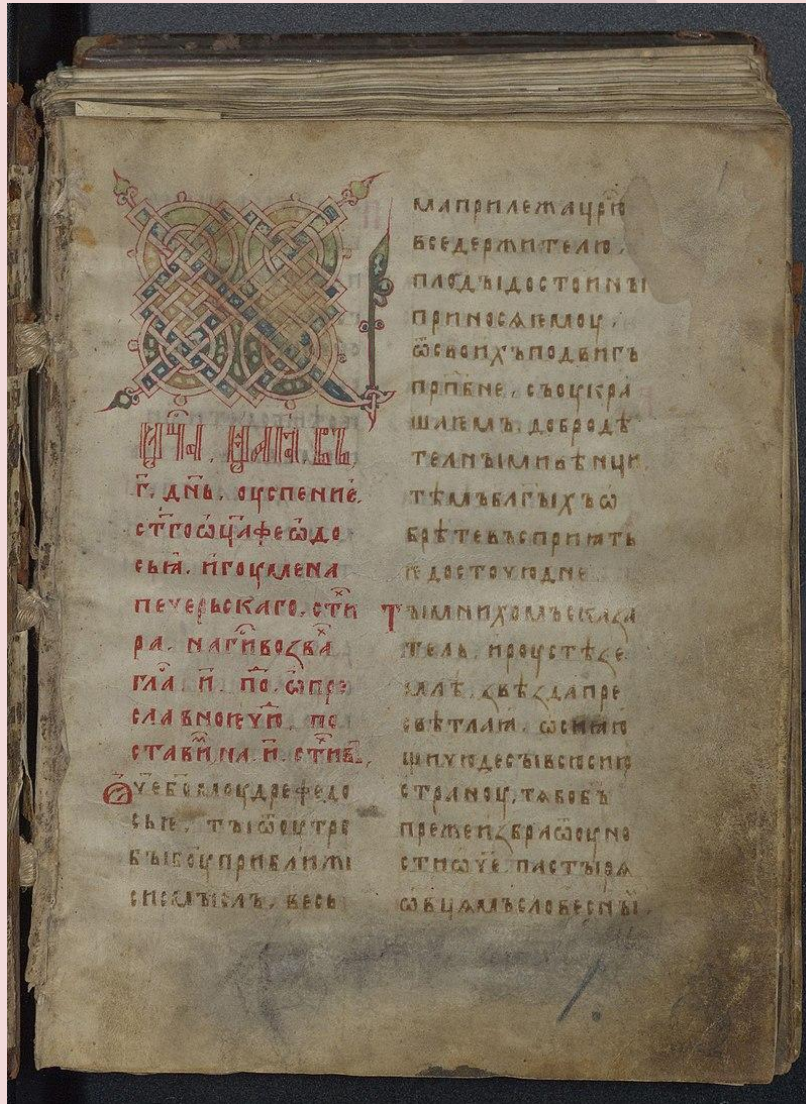 мц҃а. маꙗ. въ
г҃. дн҃ь. оуспение.
ст҃го ѡц҃а феѡдо
сьꙗ. игоумена
печерьскаго. сти
ра. на г҃и возва
гла и҃. по. прѣ
славноѥ чю. по
стави. на. и҃. стиⷯ.
Ѻч҃е бо҃моудре федо
сье. ты ѿ оутро
бы б҃оу приближи
сѧ мысль. весь
ма прилежа цр҃ю
вседержителю.
плоды достоины
приносѧ ѥмоу.
ѿ своихъ подвигъ
прп҃бне. съ оукра
шаѥмъ. добродѣ
телными вѣнци
тѣмь бл҃гыхъ ѡ
брѣте въсприꙗть
и достоино дне
Ты мнихомъ сказа
тель. и роустѣ зе
млѣ звѣзда пре
свѣтлаꙗ. ѡсиꙗю
щи чюдесы всю сию
страноу. тѧ бо б҃ъ
преже избра ѿ оуно
сти ѡч҃е. пастырѧ
ѡвцѧмъ словесны.